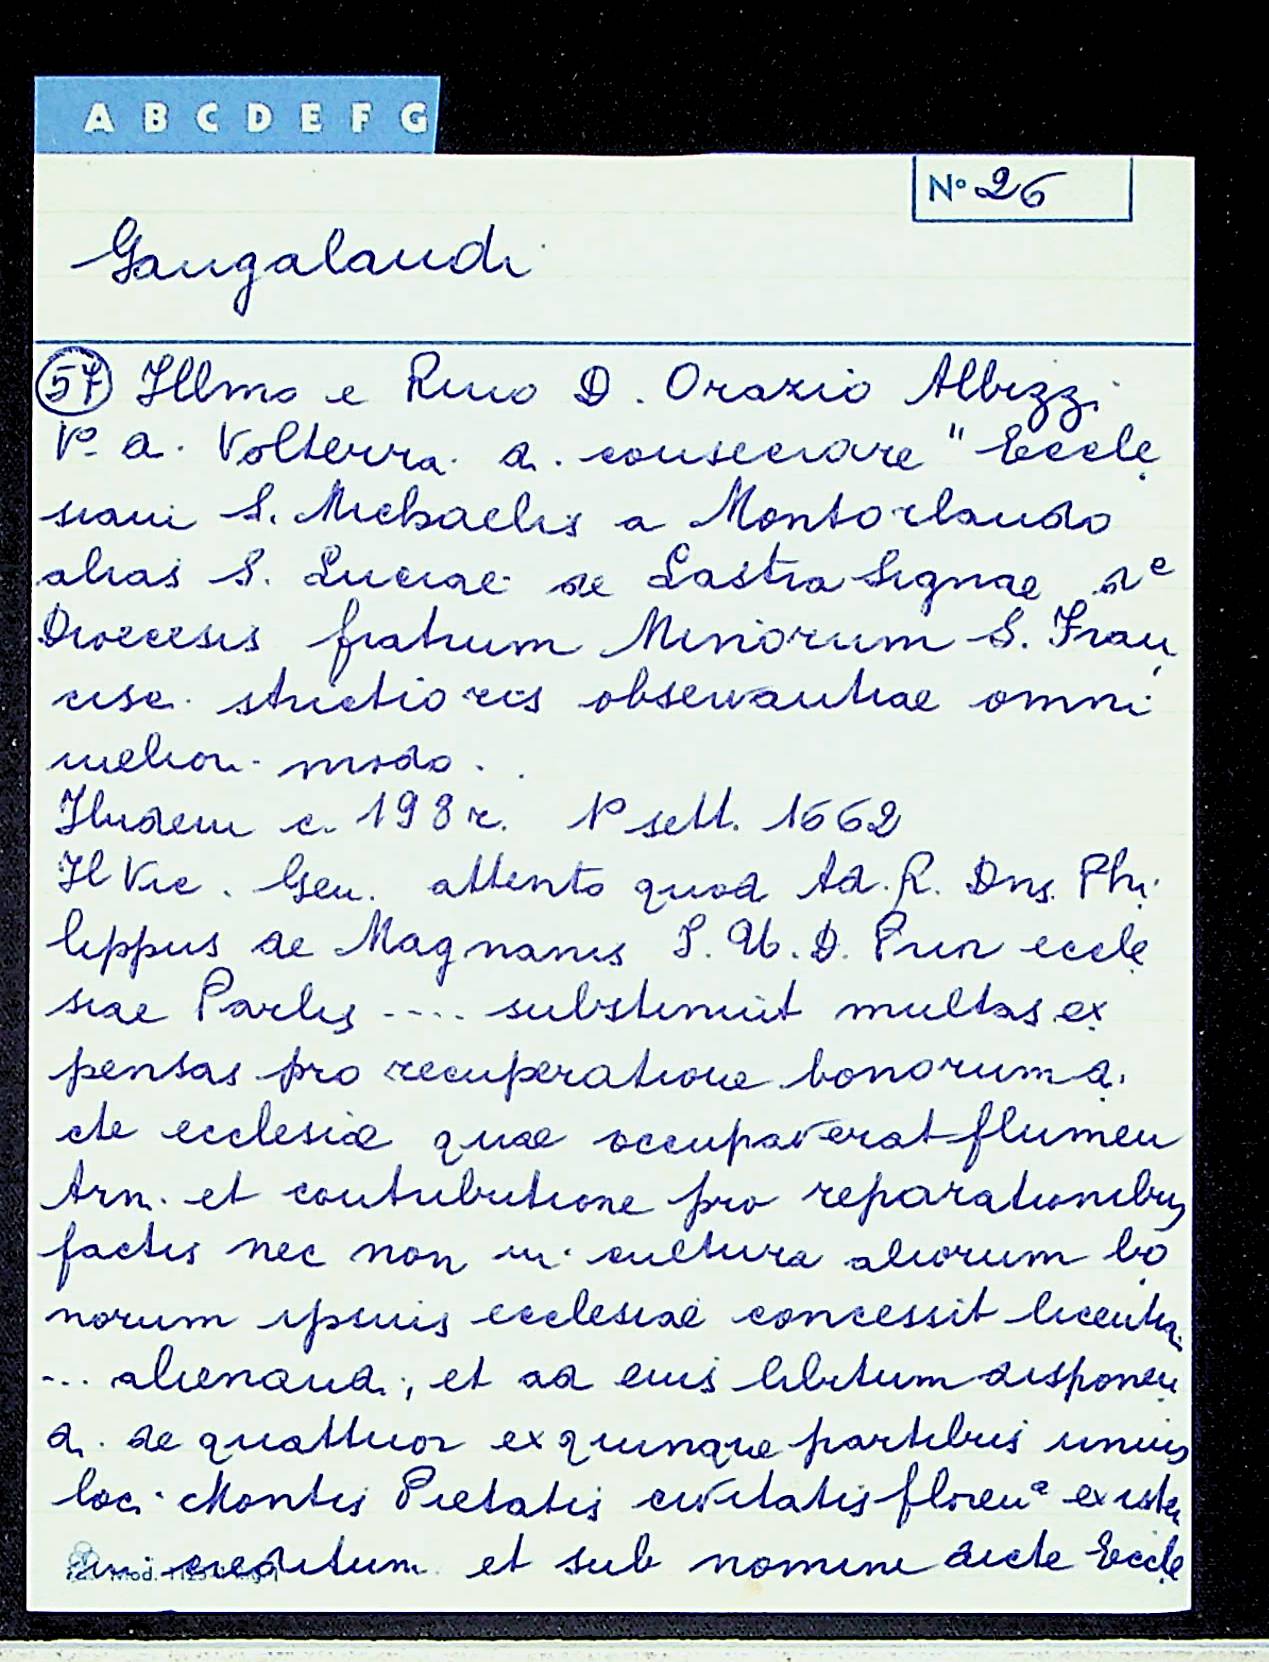 A B C D E F G
N° 26
Gangalandi
57 Illmo e Rmo D. Orazio Albizzi
V° di Volterra di consecrare "Eccle
siam S. Michaelis a Montorlando
alias S. Luciae de Lastra Signae de
Diocesis fratrum Minorum S. Fran
cisci strictioris observantiae omni
meliori modo.
Ibidem c. 198 r. 1° sett. 1662
Il Vic. Gen. attento quod Ad. R. Dns. Phi
lippus de Magnanis I. U. D. Prior eccle
siae Parlis .... substinuit multas ex
pensas pro recuperatione bonorum di
cte ecclesiae quae occupaverat flumen
Arni et contributione pro reparationibus
factis nec non in cultura aliorum bo
norum ipsius ecclesiae concessit licentia
... alienandi, et ad eius libitum disponen
di de quattuor ex quinque partibus unius
loci Montis Pietatis civitatis floren^e existen
creditum et sub nomine dicte Eccle